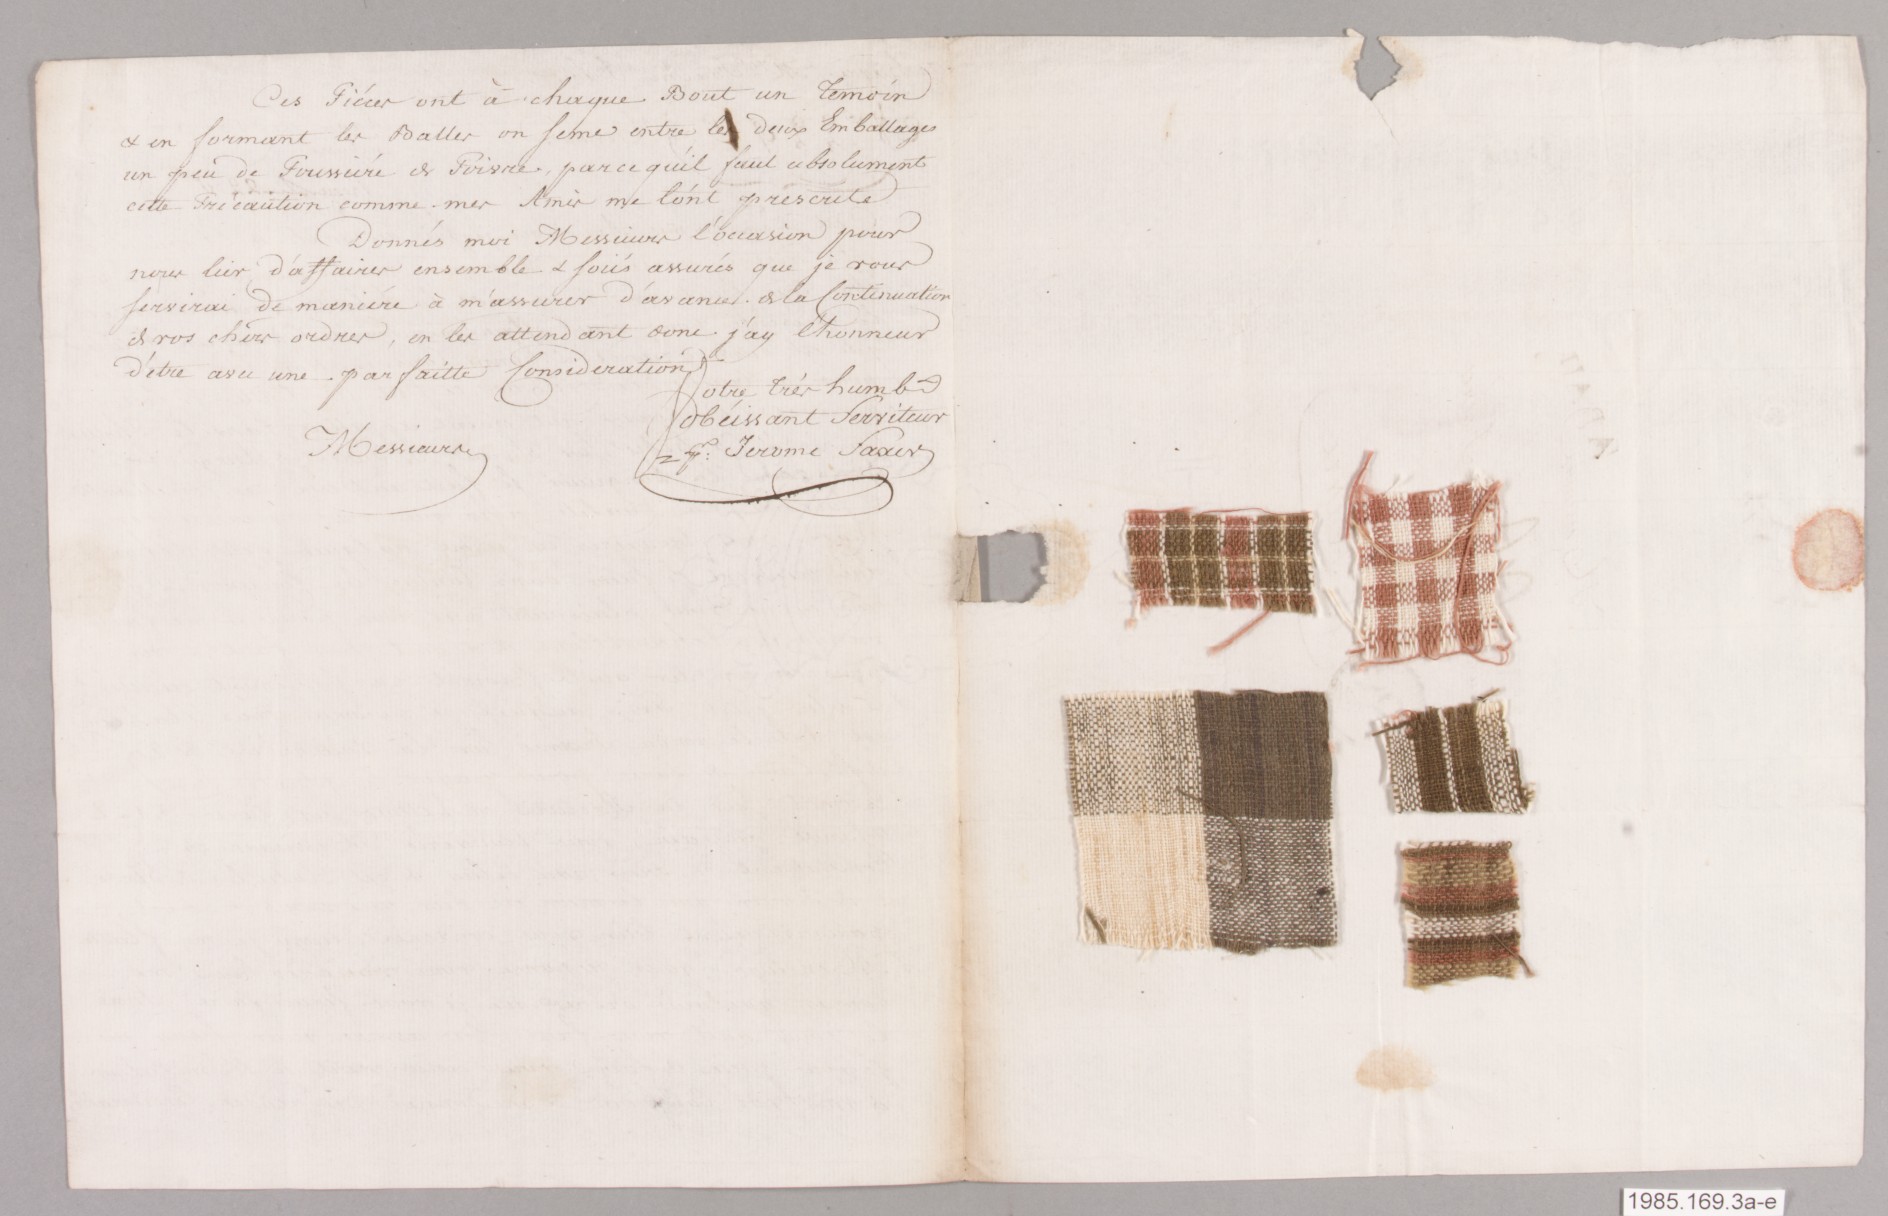 Ces Piéces ont à chaque Bout un temoin
& en formant les Balles on seme entre les deux Emballages
un peu de Poussiére de Poivre, parcequ'il faut absolument
cette Précaution comme mes Amis me l'ónt prescrite
Donnés moi Messieurs l'occasion pour
nous lier d'affaires ensemble & soiés assurés que je vous
servirai de maniére à m'assurer d'avance de la Continuation
de vos chérs ordres, en les attendant donc j'ay l'honneur
d'être avec une parfaitte Consideration
Votre trés humb
obéissant Serviteur
Messieurs
Jerome Saxer
1985.169.3a-e